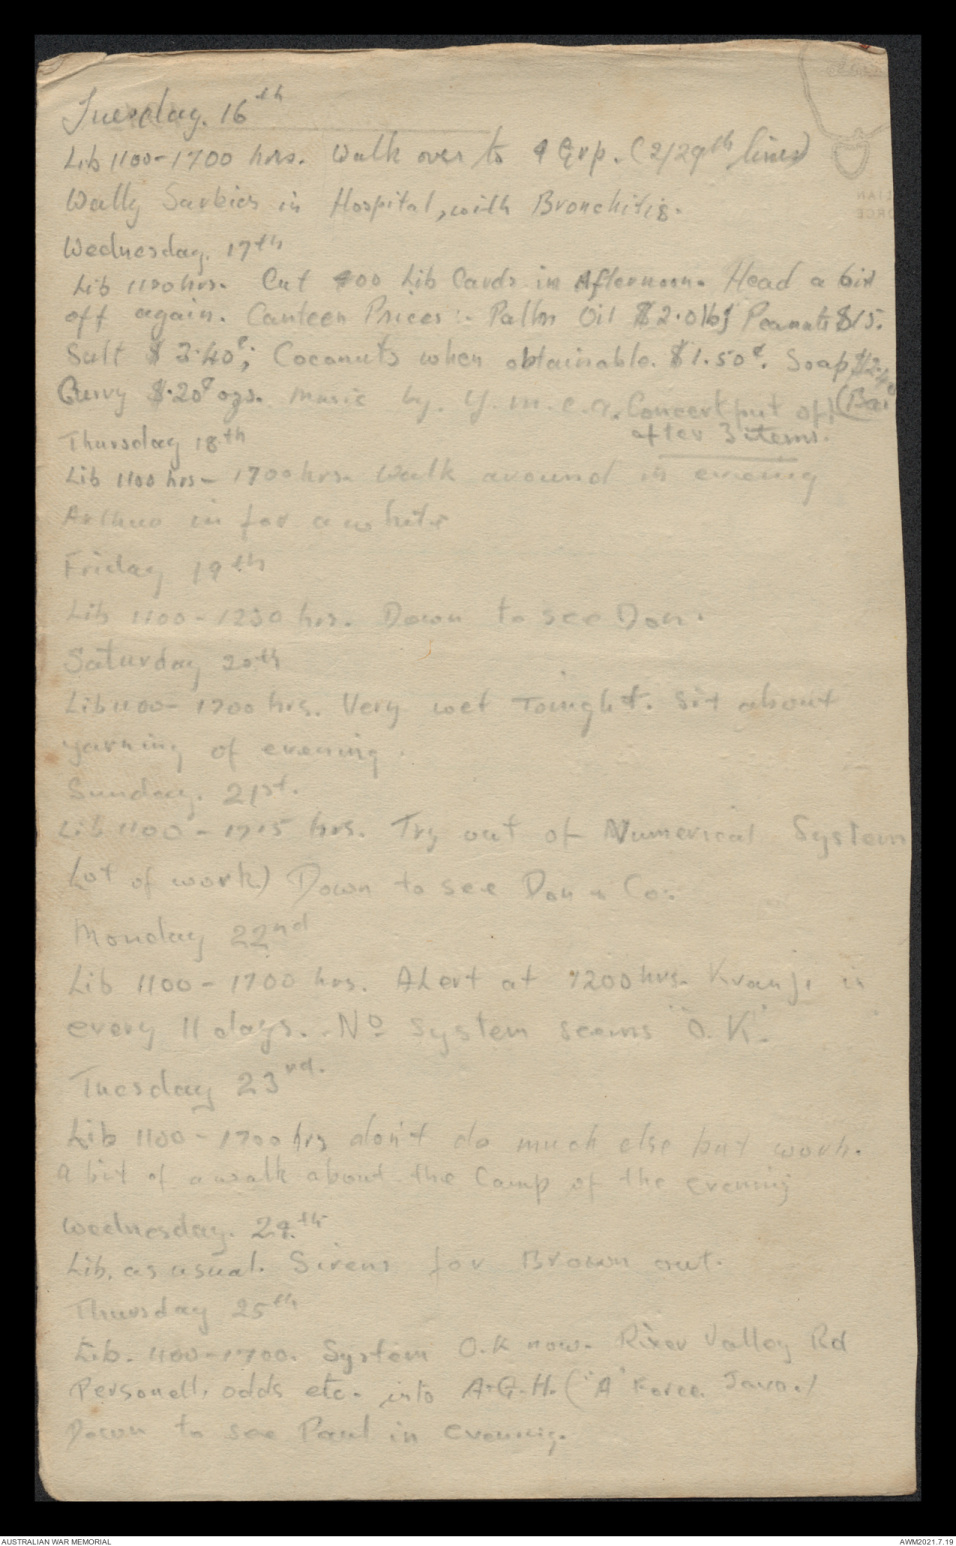 Tuesday. 16th
Lib 1100-1700 hrs. Walk over to 4 Grp. (2/29th lines)
Wally in Hospital, with Bronchitis.
Wednesday. 17th
Lib 1100hrs. Cut 400 Lib Cards in Afternoon. Head a bit
off again. Canteen Prices :- Palm Oil $2.0 Peanuts $15.
Salt $ 3.40c; Coconuts when obtainable. $1.50c. Soap
Curry $.20c ozs. Music by. Y.M.C.A. Concert put off (Bar
after 3 items.
Thursday 18th
Lib 1100 hrs - 1700hrs. Walk around in evening
Arthur in for a while
Friday 19th
Lib 1100 - 1230 hrs. Down to see Don.
Saturday 20th
Lib 1100- 1700 hrs. Very wet Tonight. Sit about
yarning of evening.
Sunday. 21st.
Lib 1100 - 1715 hrs. Try out of Numerical System
Lot of work) Down to see Don & Co.
Monday 22nd
Lib 1100 - 1700 hrs. ALert at 1200hrs. Kranji is
every 11 days. No System seems 'O.K.'
Tuesday 23rd.
Lib 1100 - 1700 hrs don't do much else but work.
A bit of a walk about the Camp of the evening
Wednesday. 24th
Lib. as usual. Sirens for Brown out.
Thursday 25th
Lib. 1100-1700. System O.K now. River Valley Rd
Personell, odds etc. into A.G.H. ('A' Force. Java.)
Down to see Paul in evening.
AUSTRALIAN WAR MEMORIAL
AWM2021.7.19